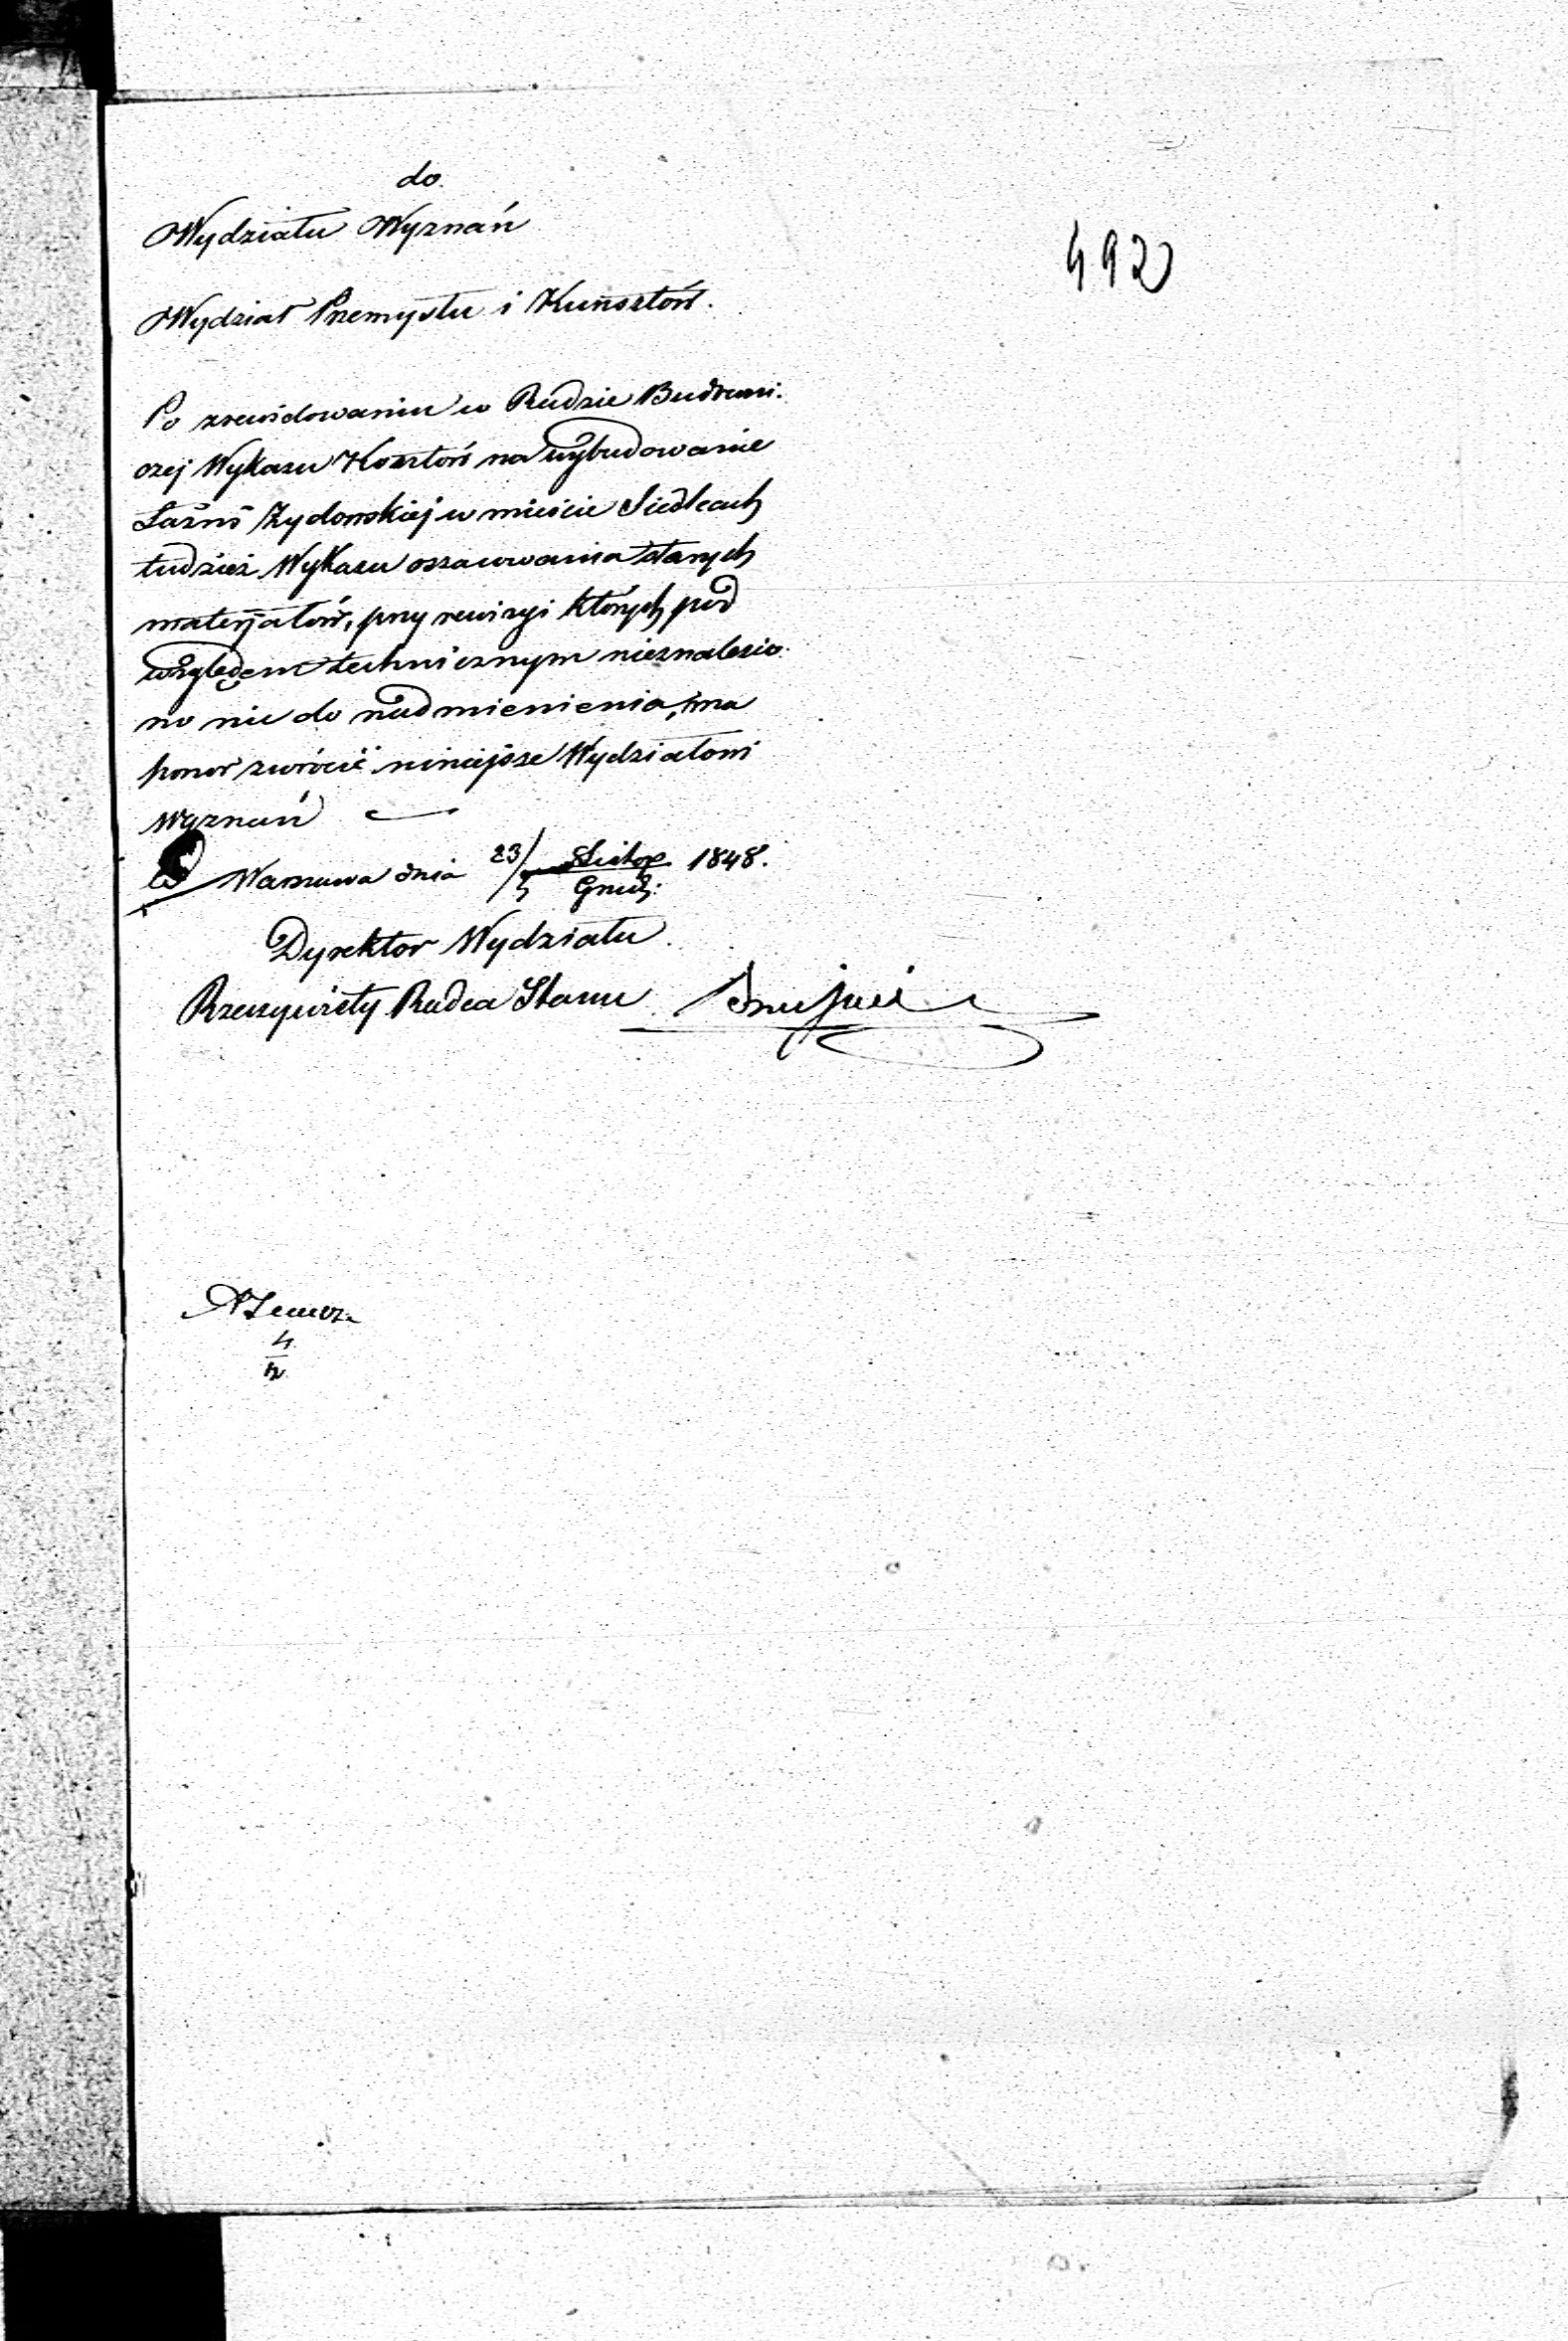 do.
Wydziału Wyznań
492
Wydział Przemysłu i Kunsztów.
Po zrewidowaniu w Radzie Budowni-
czej Wykazu Kosztów na wybudowanie
Łaźni Żydowskiej w mieście Siedlcach
tudzież Wykazu oszacowania starych
materjałów, przy rewizyi których pod
względem technicznym nieznalezio-
no nic do nadmienienia, ma
honor zwrócić niniejsze Wydziałowi
Wyznań
Warszawa dnia 23/5 Listop/Grud: 1848.
Dyrektor Wydziału
Rzeczywisty Radca Stanu
4
12